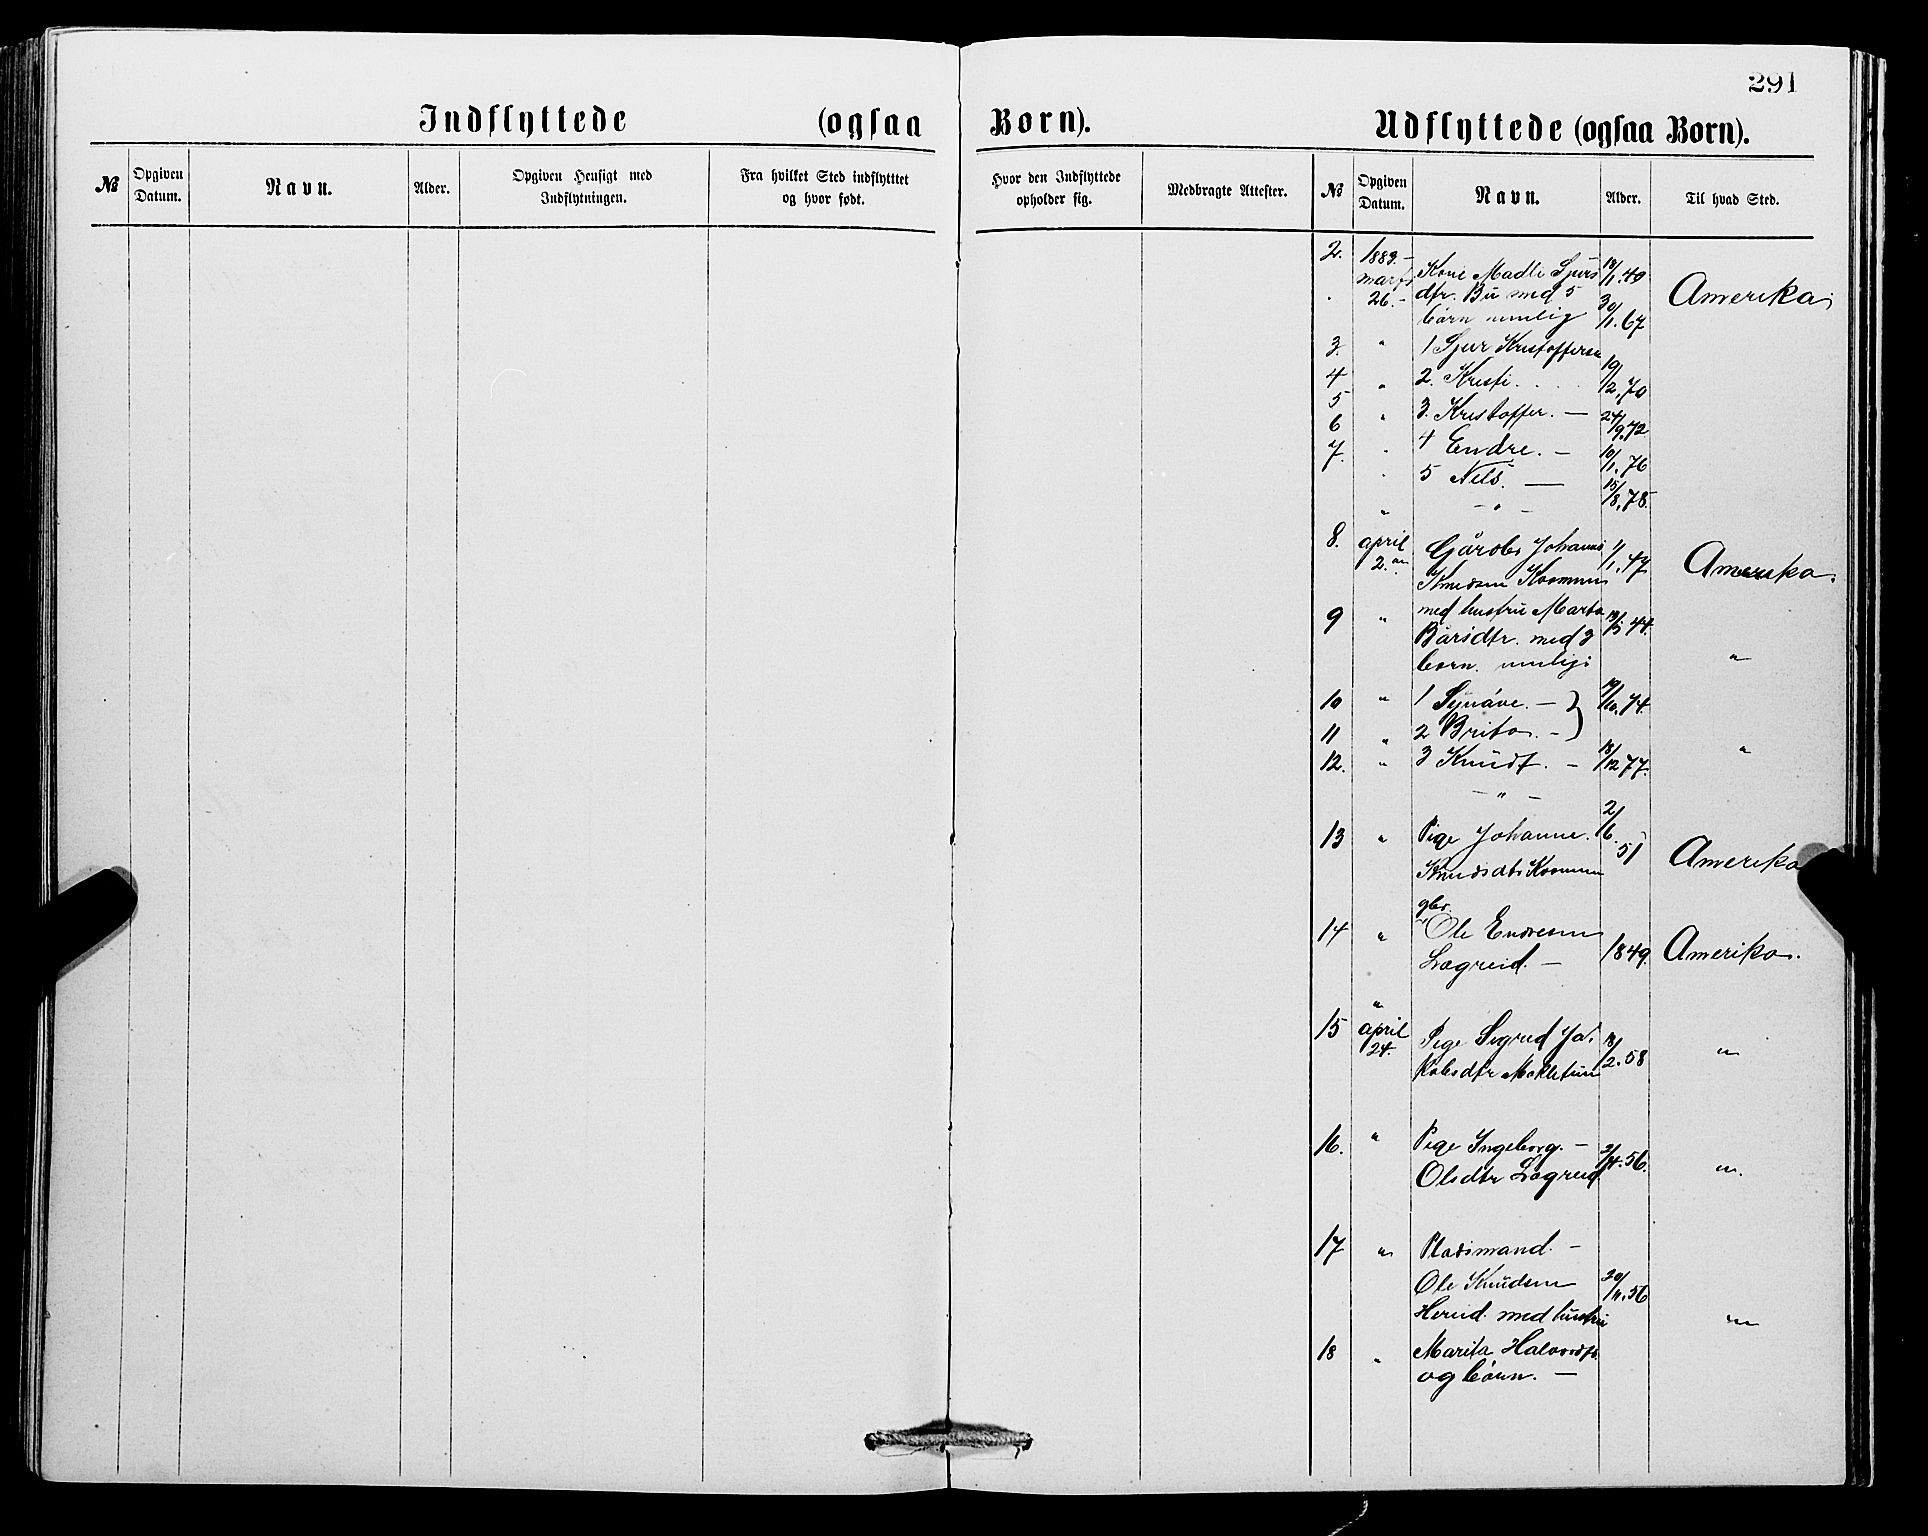 291
Indflyttede (ogsaa Børn).
Udflyttede (ogsaa Børn).
№ Opgiven Datum. Navn. Alder. Opgiven Hensigt med Indflytningen. Fra hvilket Sted indflyttet og hvor født. Hvor den Indflyttede opholder sig. Medbragte Attester. № Opgiven Datum. Navn. Alder. Til hvad Sted.
2. 1883.- Kone Madli Sjurs 18/1.49
marts 26.- dtr. Bu med 5 Amerika
børn nemlig 30/1.67
3. " 1 Sjur Kristoffersen
4 " 2. Kristi. 19/2.70
5 " 3. Kristoffer. — 24/9.72
6 " 4 Endre. — 10/1.76
7. " 5 Nils. — 15/8.78.
" — " —
8. april Gårdbr Johannes 1/1.47 Amerika.
2. Knudsen
9 " med hustru Marta 44.
Bårsdtr. med 3
børn. nemlig: "
10 " 1 Synåve. — 19/10.74.
11 " 2 Brita. —
12. " 3 Knudt. — 18/12 77. "
— " —
13 " Pige Johanne. 2/6. 51 Amerika
Knudsdtr
gbr.
14 " Ole Endresen 1849. Amerika.
Lægreid. —
"
15 april Pige Sigrid Ja, 18/2.58 "
24. kobsdtr Mæletun
16. " Pige Ingeborg. — 2/4.56. "
Olsdtr Lægreid
17 " Pladsmand. —
Ole Knudsen 30/11.56
Hereid. med hustru "
18 " Marita Halvorsdtr.
og børn. —